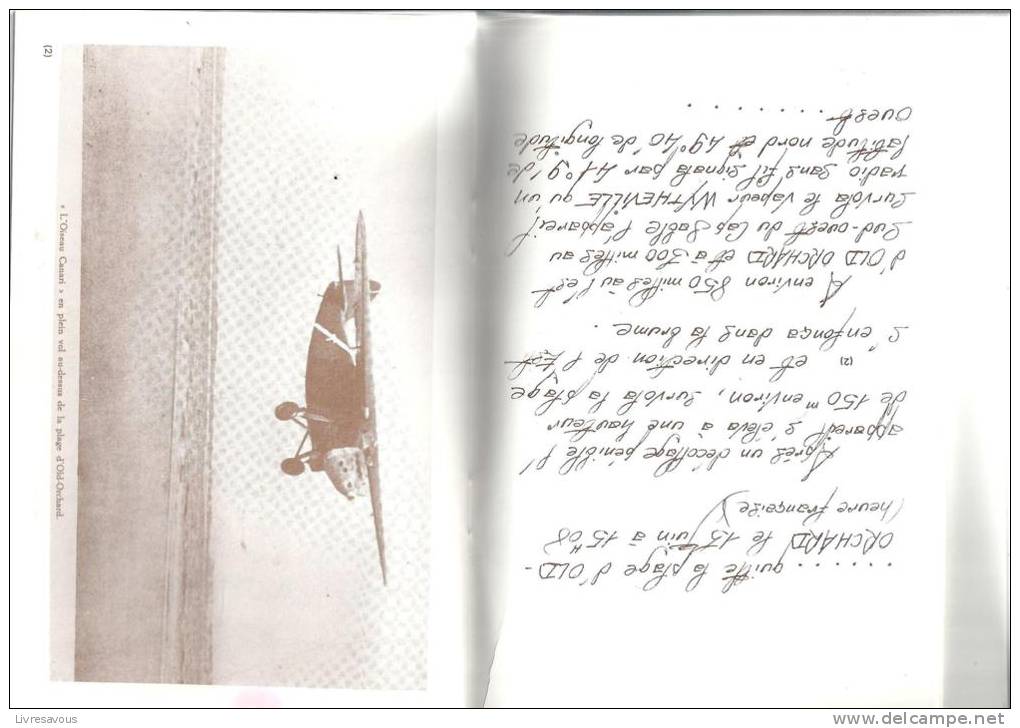 (2)
« L'Oiseau Canari » en plein vol au-dessus de la plage d'Old-Orchard.
....... quitte la plage d'OLD-
ORCHARD le 13 Juin à 15H08
(heure française)
Après un décollage pénible l'
appareil s'éleva à une hauteur
de 150 m environ, survola la plage
(2) et en direction de l'Est
s'enfonça dans la brume.
A environ 850 milles à l'est
d'OLD ORCHARD et à 300 milles au
sud-ouest du Cap Sable l'appareil
survola le vapeur WYTHEVILLE qu'un
radio sans fil signala par 41°91' de
latitude nord et 49°40' de longitude
Ouest.
........
Livresavous
www.delcampe.net